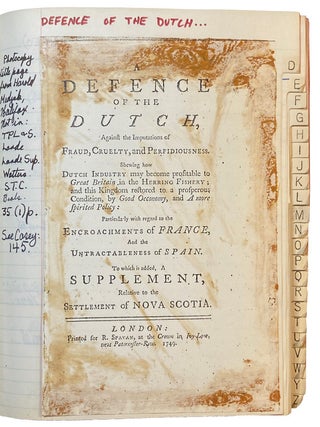 DEFENCE OF THE DUTCH...
Photocopy
title page
from Harold
Medjuk,
Not in:
TPL & S.
Lande
Lande Sup.
Watters
S.T.C.
35 (1)p.
See Casey:
145
A
DEFENCE
OF THE
DUTCH,
Against the Imputations of
FRAUD, CRUELTY, and PERFIDIOUSNESS.
Shewing how
DUTCH INDUSTRY may become profitable to
Great Britain in the HERRING FISHERY;
and this Kingdom restored to a prosperous
Condition, by Good Oeconomy, and A more
Spirited Policy:
Particularly with regard to the
ENCROACHMENTS of FRANCE,
And the
UNTRACTABLENESS of SPAIN.
To which is added, A
SUPPLEMENT,
Relative to the
SETTLEMENT OF NOVA SCOTIA.
LONDON:
Printed for R. SPAVAN, at the Crown in Ivy-Lane,
near Paternoster-Row. 1749.
D
E
F
G
H
I
J
K
L
M
N
O
P
Q
R
S
T
U
V
W
X
Y
Z